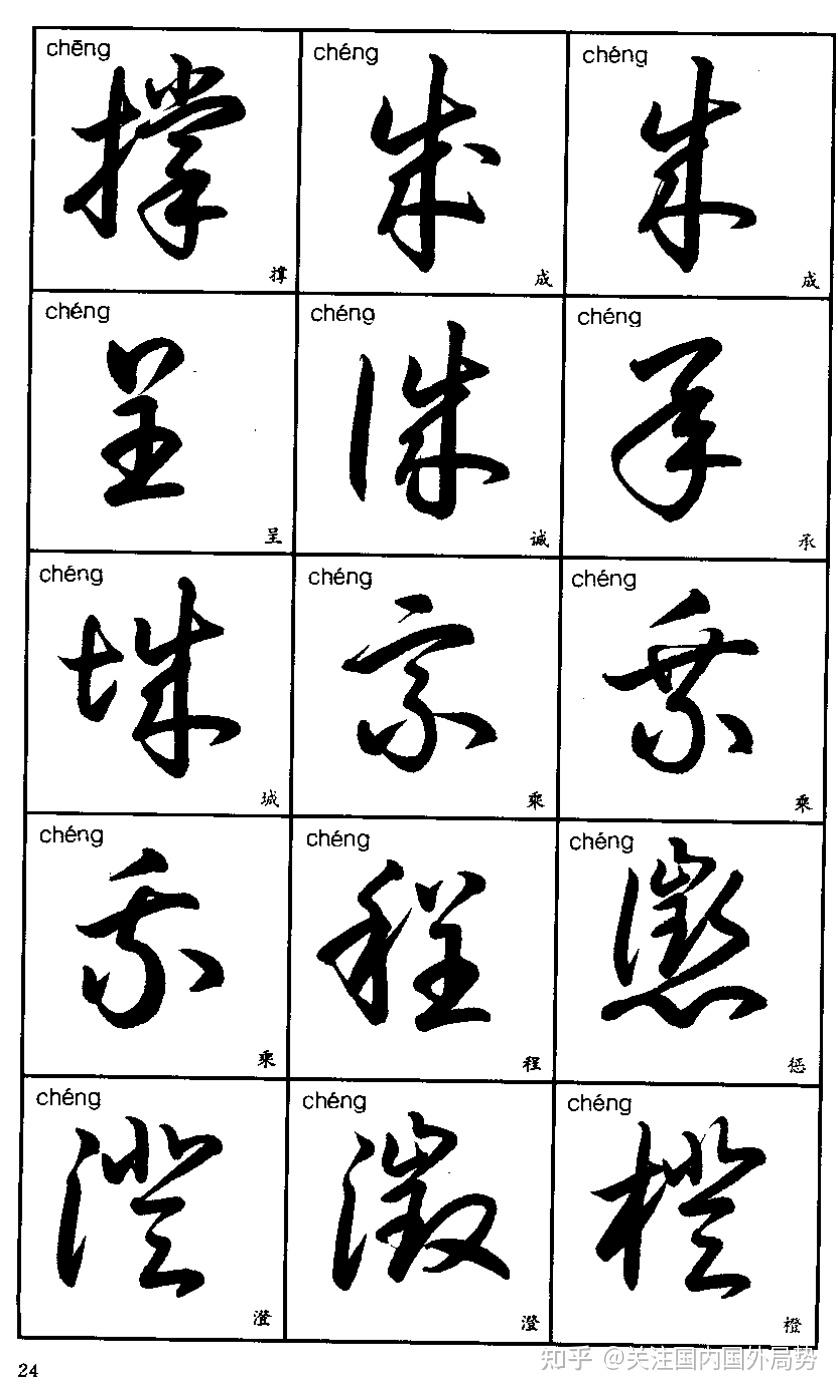 chēng
撑
撑
chéng
成
成
chéng
成
成
chéng
呈
呈
chéng
诚
诚
chéng
承
承
chéng
城
城
chéng
乘
乘
chéng
乘
乘
chéng
乘
乘
chéng
程
程
chéng
懲
惩
chéng
澄
澄
chéng
澂
澄
chéng
橙
橙
24
知乎 @关注国内国外局势